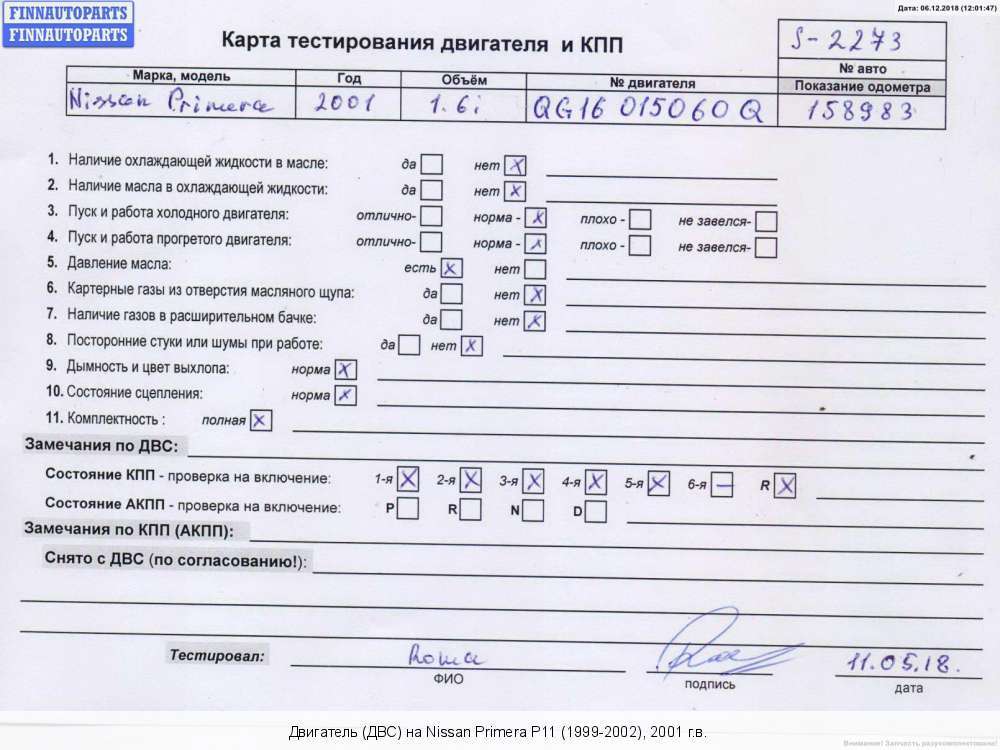 FINNAUTOPARTS
FINNAUTOPARTS
Дата: 06.12.2018 (12:01:47)
Карта тестирования двигателя и КПП
S-2273
№ авто
Марка, модель Год Объём № двигателя Показание одометра
Nissan Primera 2001 1.6i QG16 015060Q 158983
1. Наличие охлаждающей жидкости в масле: да нет X
2. Наличие масла в охлаждающей жидкости: да нет X
3. Пуск и работа холодного двигателя: отлично- норма - X плохо - не завелся-
4. Пуск и работа прогретого двигателя: отлично- норма - X плохо - не завелся-
5. Давление масла: есть X нет
6. Картерные газы из отверстия масляного щупа: да нет X
7. Наличие газов в расширительном бачке: да нет X
8. Посторонние стуки или шумы при работе: да нет X
9. Дымность и цвет выхлопа: норма X
10. Состояние сцепления: норма X
11. Комплектность : полная X
Замечания по ДВС:
Состояние КПП - проверка на включение: 1-я X 2-я X 3-я X 4-я X 5-я X 6-я — R X
Состояние АКПП - проверка на включение: P R N D
Замечания по КПП (АКПП):
Снято с ДВС (по согласованию!):
Тестировал: Roma 11.05.18.
ФИО подпись дата
Двигатель (ДВС) на Nissan Primera P11 (1999-2002), 2001 г.в.
Внимание! Запчасть разукомплектована!